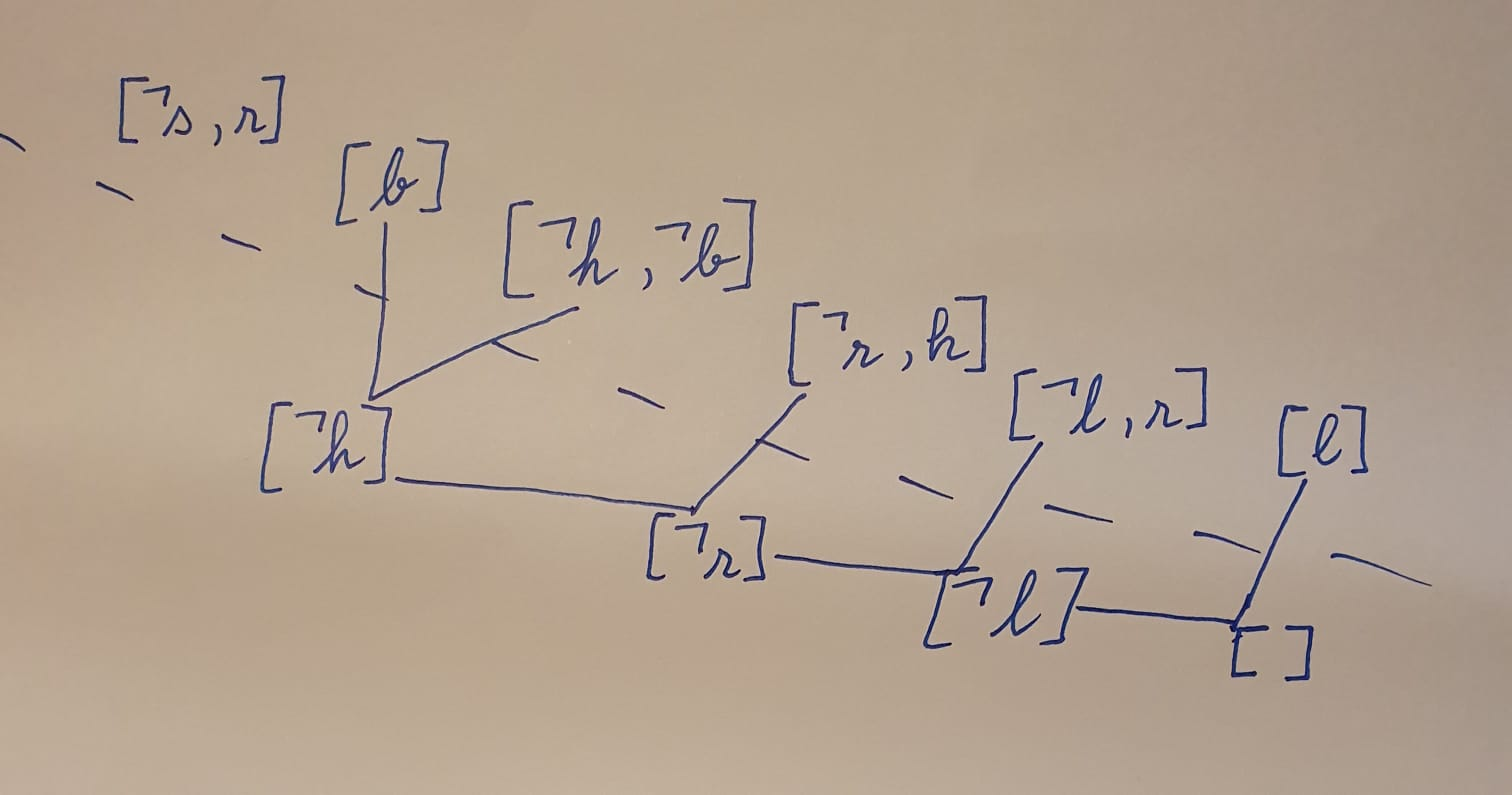 [¬s, r]
[b]
[¬h, ¬b]
[¬r, h]
[¬l, r]
[l]
[¬h]
[¬r]
[¬l]
[ ]